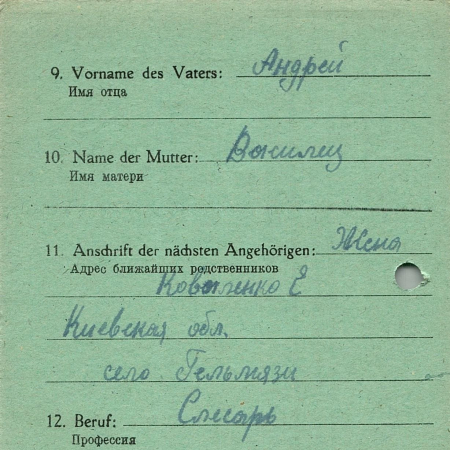 9. Vorname des Vaters: Андрей
Имя отца
10. Name der Mutter: Василец
Имя матери
11. Anschrift der nächsten Angehörigen: Жена
Адрес ближайших родственников
Коваленко Е
Киевская обл.
село Гельмязи
12. Beruf: Слесарь
Профессия